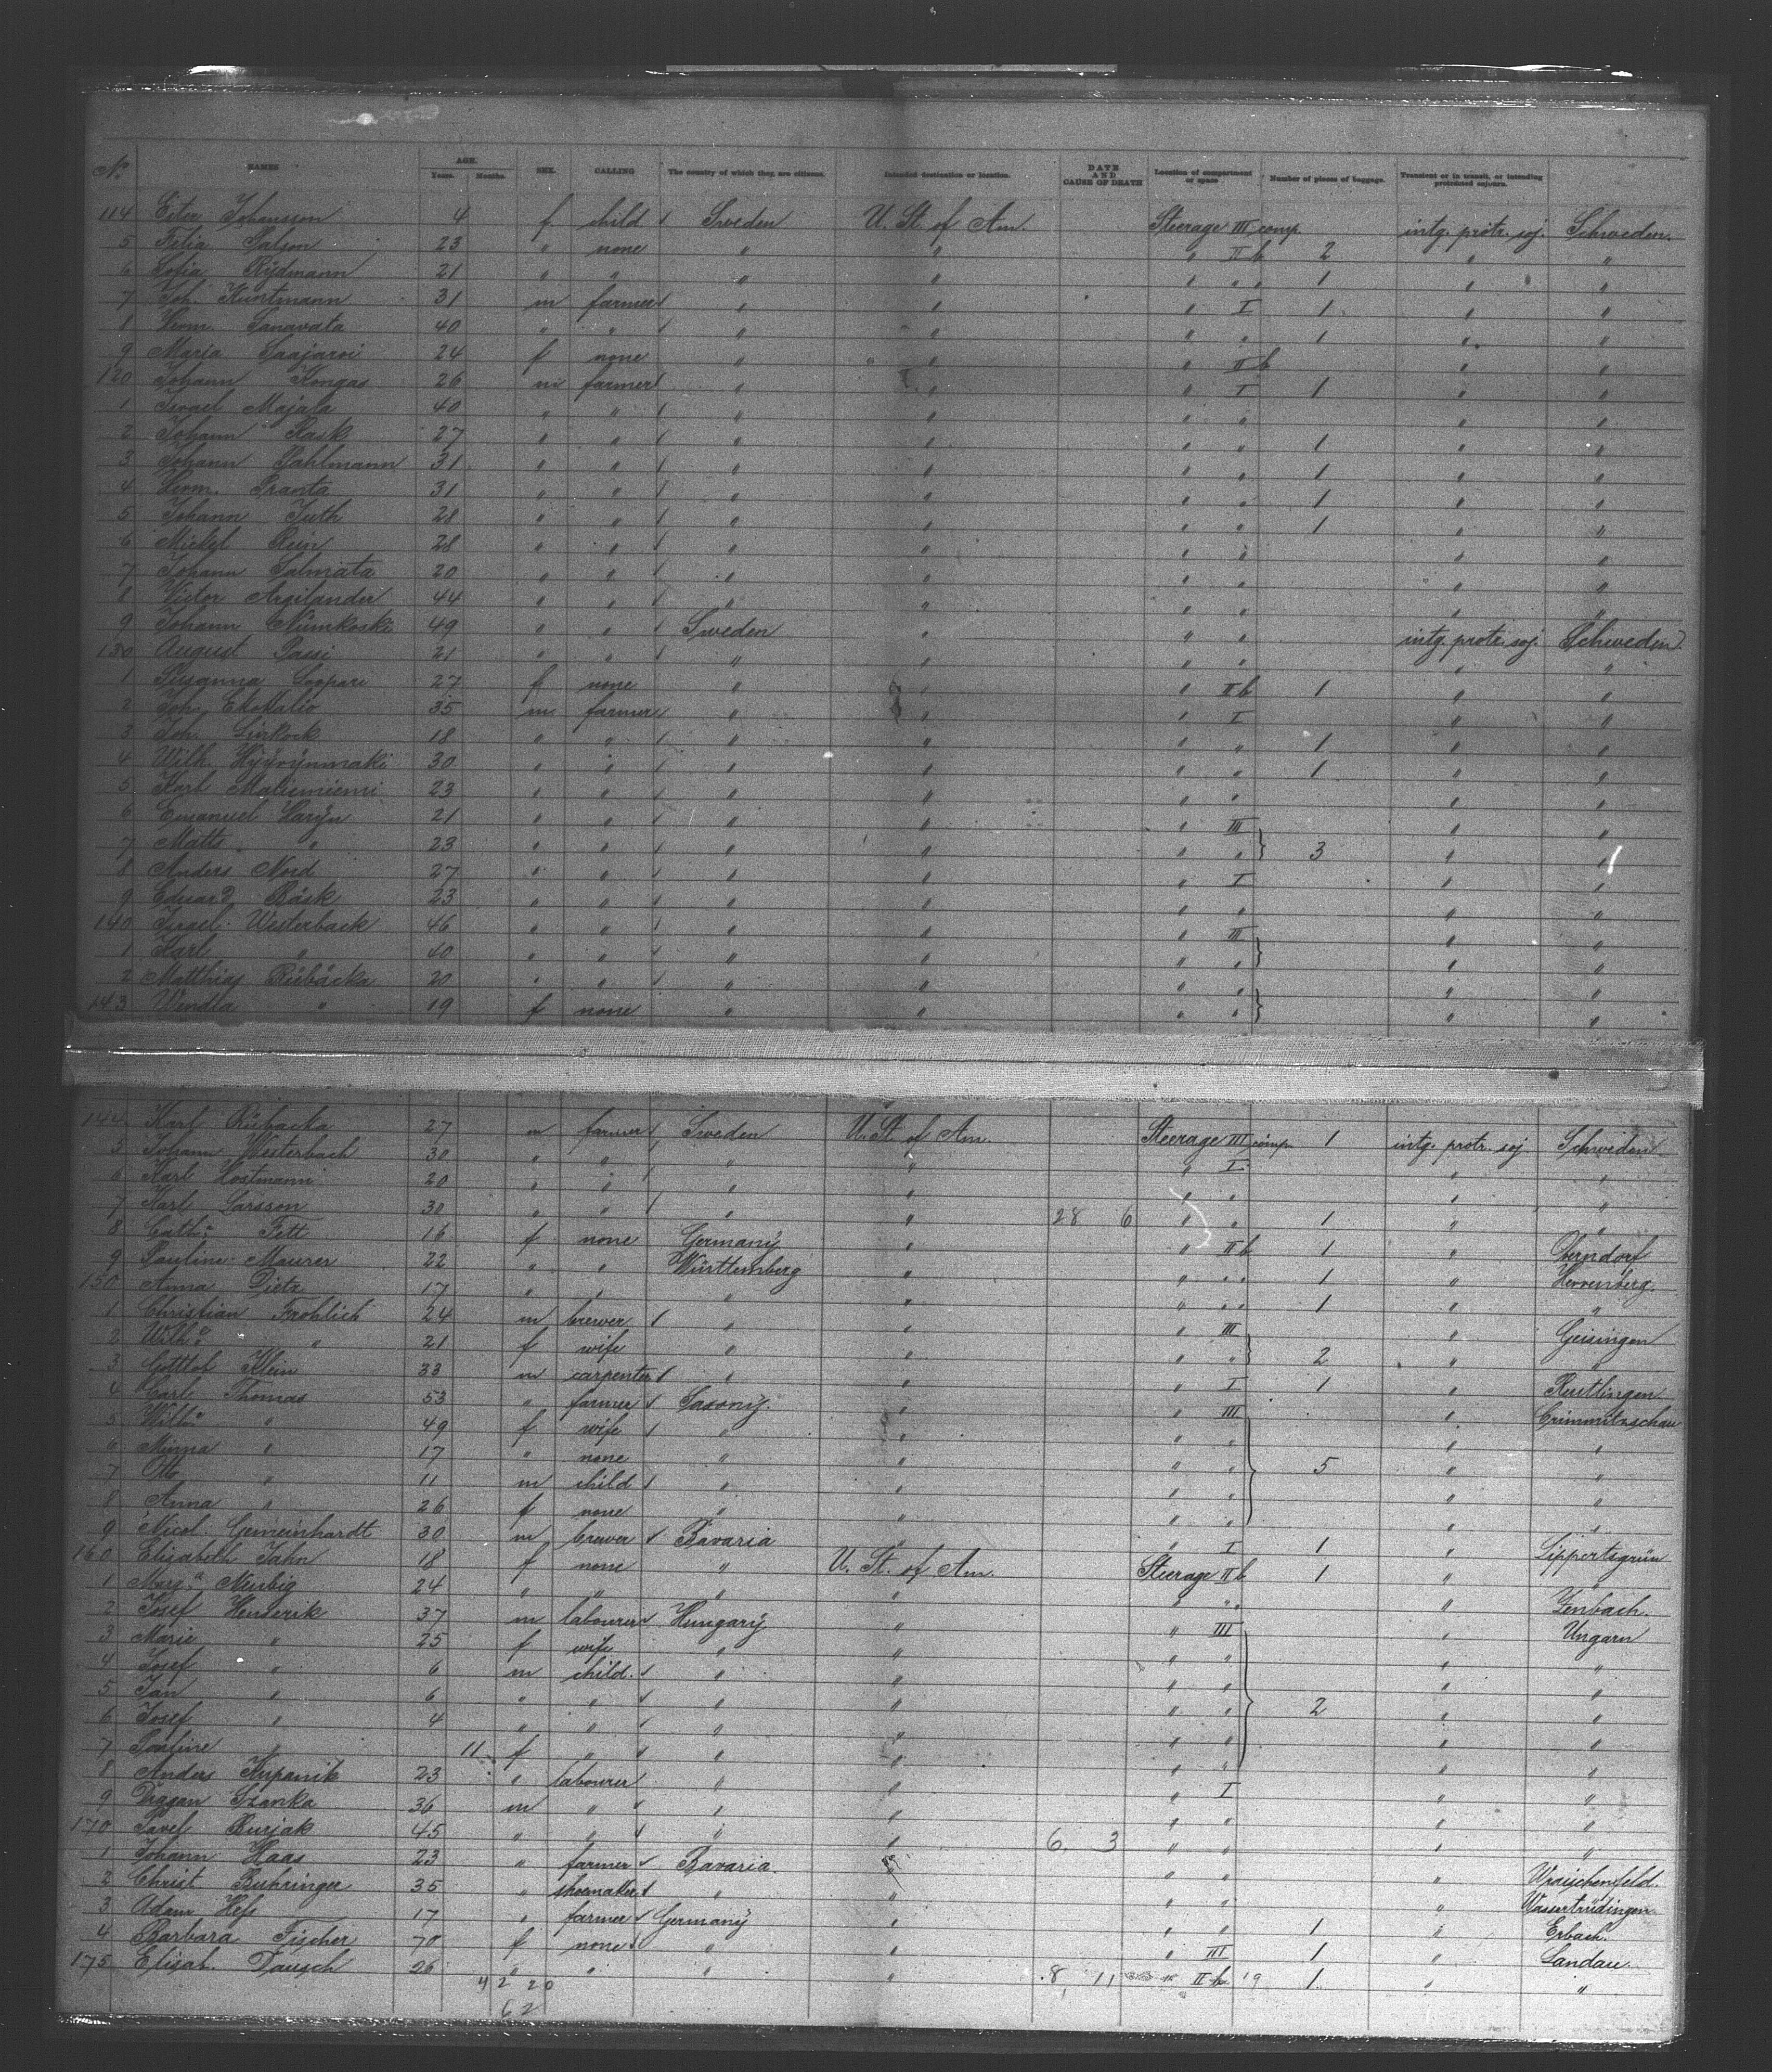 No. NAMES AGE. Years. Months. SEX. CALLING The country of which they are citizens. Intended destination or location. DATE AND CAUSE OF DEATH Location of compartment or space Number of pieces of baggage. Transient or in transit, or intending protracted sojourn.
114 Ester Johansson 4 f child Sweden U. St. of Am. Steerage III comp. intg. protr. soj. Schweden.
5 Felia 23 " none " " " II b 2 " "
6 Sofia Rydmann 21 " " " " " " " 1 " "
7 Joh. Kunstmann 31 m farmer " " " I 1 " "
8 Herm. Sanavata 40 " " " " " " 1 " "
9 Maria Saajarvi 24 f none " " " II b " "
120 Johann Kongas 26 m farmer " " " I 1 " "
1 Israel Majala 40 " " " " " " " "
2 Johann Rask 27 " " " " " " 1 " "
3 Johann Dahlmann 31 " " " " " " 1 " "
4 Herm. Granta 31 " " " " " " 1 " "
5 Johann Juth 28 " " " " " " 1 " "
6 Mickel Rein 28 " " " " " " " "
7 Johann Salmata 20 " " " " " " " "
8 Victor Argilander 44 " " " " " " " "
9 Johann Nümkoski 49 " " Sweden " " " intg. protr. soj. Schweden.
130 August Passi 21 " " " " " " " "
1 Susanna Caspari 27 f none " " " II b 1 " "
2 Joh. 35 m farmer " " " I " "
3 Joh. Linkock 18 " " " " " " 1 " "
4 Wilh. Hÿÿrÿnmaki 30 " " " " " " 1 " "
5 Karl Maliemiemi 23 " " " " " " " "
6 Emanuel Harÿn 21 " " " " " III " "
7 Matts " 23 " " " " " " 3 " "
8 Anders Nord 27 " " " " " I " "
9 Eduard Bäsk 23 " " " " " " " "
140 Israel Westerback 46 " " " " " III " "
1 Karl " 40 " " " " " " " "
2 Matthias Rübäcka 20 " " " " " " " "
143 Wendla " 19 f none " " " " " "
144 Karl Rübacka 27 m farmer Sweden U. St. of Am. Steerage III comp. 1 intg. protr. soj. Schweden
5 Johann Westerbach 30 " " " " " I " "
6 Karl Hostmann 20 " " " " " " " "
7 Karl Larsson 30 " " " " 28 6 " " 1 " "
8 Cath.a Fett 16 f none Germanÿ " " II b 1 " Oberndorf
9 Pauline Maurer 22 " " Württemberg " " " " 1 " Herrenberg.
150 Anna Dietz 17 " " " " " " " 1 " "
1 Christian Frohlich 24 m brewer " " " III " Geisingen
2 Wilh.e " 21 f wife " " " " 2 " "
3 Gottlob Klein 33 m carpenter " " " I 1 " Reutlingen
4 Carl Thomas 53 " farmer Saxonÿ. " " III " Crimmitzschau
5 Wilh.e " 49 f wife " " " " " "
6 Minna " 17 " none " " " " 5 " "
7 Otto " 11 m child " " " " " "
8 Anna " 26 f none " " " " " "
9 Nicol. Gemeinhardt 30 m brewer Bavaria " " I 1 " Lippertsgrün
160 Elisabeth Jahn 18 f none " U. St. of Am. Steerage II b 1 " "
1 Marg.a Neubig 24 " " " " " " " "
2 Josef Henderik 37 m labourer Hungarÿ " " III " Ungarn
3 Marie " 25 f wife " " " " " "
4 Josef " 6 m child. " " " " " "
5 Jan " 6 " " " " " " 2 " "
6 Josef " 4 " " " " " " " "
7 Pauline " 11 f " " " " " " "
8 Anders Kupanik 23 " labourer " " " I " "
9 Dragan Szanka 36 m " " " " " " "
170 Pavel Burjak 45 " " " " 6. 3 " " " "
1 Johann Haas 23 " farmer Bavaria. " " " "
2 Christ. Buhringer 35 " shoemaker " " " " " Wassertrüdingen
3 Adam Heß 17 " farmer Germanÿ " " " 1 " Erbach.
4 Barbara Fischer 70 f none " " " III 1 " Landau
175 Elisab. Dausch 26 " " " " 8 11 " II b 19 1 " "
4 2 20
62